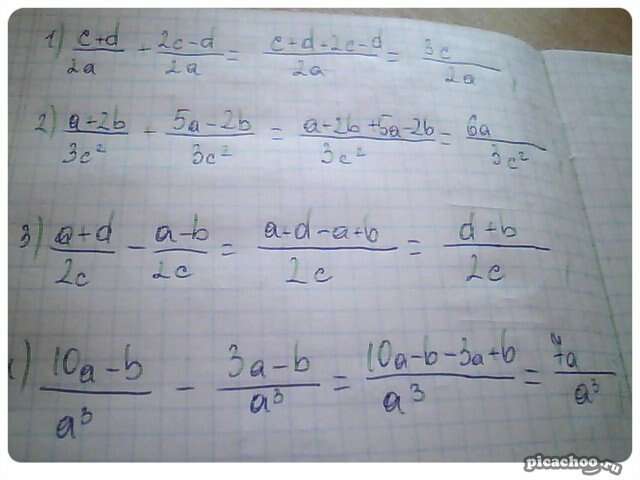 1) (c+d)/(2a) + (2c-d)/(2a) = (c+d+2c-d)/(2a) = 3c/(2a)
2) (a-2b)/(3c²) + (5a-2b)/(3c²) = (a-2b+5a-2b)/(3c²) = 6a/(3c²)
3) (a+d)/(2c) - (a-b)/(2c) = (a+d-a+b)/(2c) = (d+b)/(2c)
(10a-b)/(a³) - (3a-b)/(a³) = (10a-b-3a+b)/(a³) = 7a/(a³)
picachoo.ru